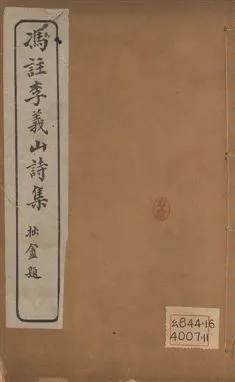 馮註李義山詩集
松盦題
844·16
4007·11